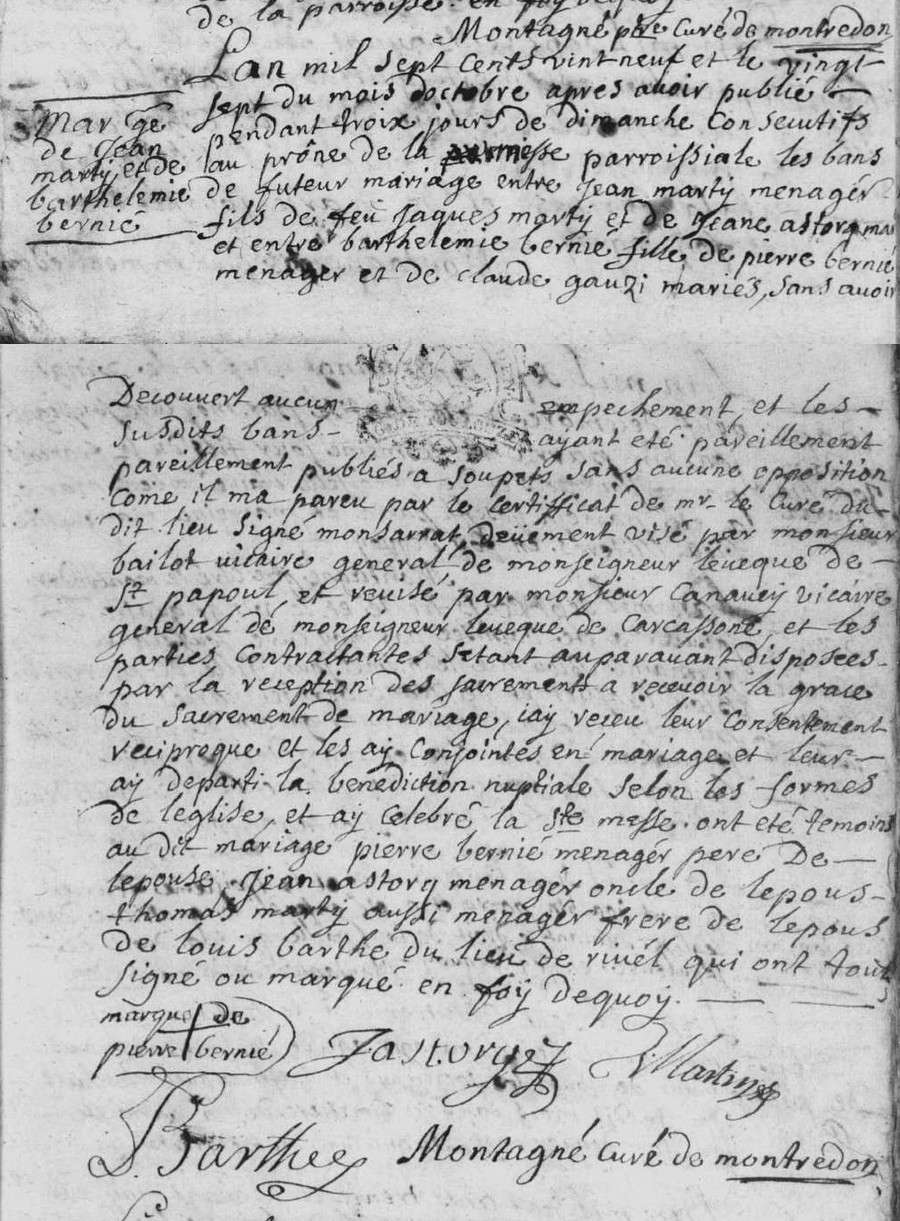 de la parroisse. en foy dequoy
Montagné ptre Curé de montredon
Lan mil sept cents vint neuf et le vingt
sept du mois doctobre apres avoir publié
Mar ge
de Jean
marty et de
barthelemie
bernié
pendant troix jours de dimanche consecutifs
au prône de la messe parroissiale les bans
de futeur mariage entre Jean marty menagér
fils de feu Jaques marty et de Jeane astorg ma
et entre barthelemie bernié fille de pierre bernié
menager et de claude gauzi mariés, sans avoir
Decouvert aucun empechement, et les
susdits bans ayant eté pareillement
pareillement publiés a soupets sans aucune opposition
Come il ma pareu par le Certifficat de mr le Curé du
dit lieu signé monsarrat, deüement visé par monsieur
bailot vicaire general de monseigneur leveque de
St papoul, et revisé par monsieur Canavey vicaire
general de monseigneur leveque de Carcassone, et les
parties Contractantes setant auparavant disposées
par la reception des sacrements a recevoir la grace
du sacrement de mariage, iay receu leur Consentement
reciproque et les ay Conjointes en mariage et leur
ay departi la benediction nuptiale selon les formes
de leglise, et ay Celebré la Ste messe. ont eté temoins
au dit mariage pierre bernié menagér pere De
lepouse Jean astorg menagér oncle de lepous
thomas marty aussi menagér frere de lepous
de louis barthe du lieu de rivél qui ont tout
signé ou marqué en foy dequoy.
marque de
pierre bernié
Jastorg TMartiny
L. Barthe Montagné Curé de montredon